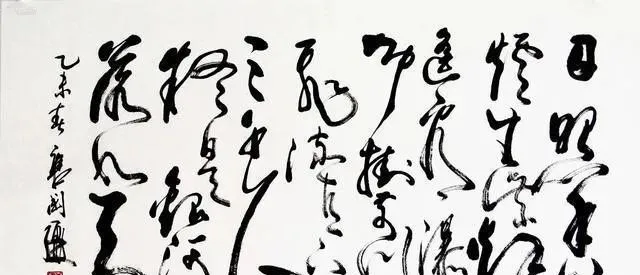 日照香
炉生紫烟
遥看瀑
布挂前川
飞流直下
三千
疑是银河
落九天
乙未春